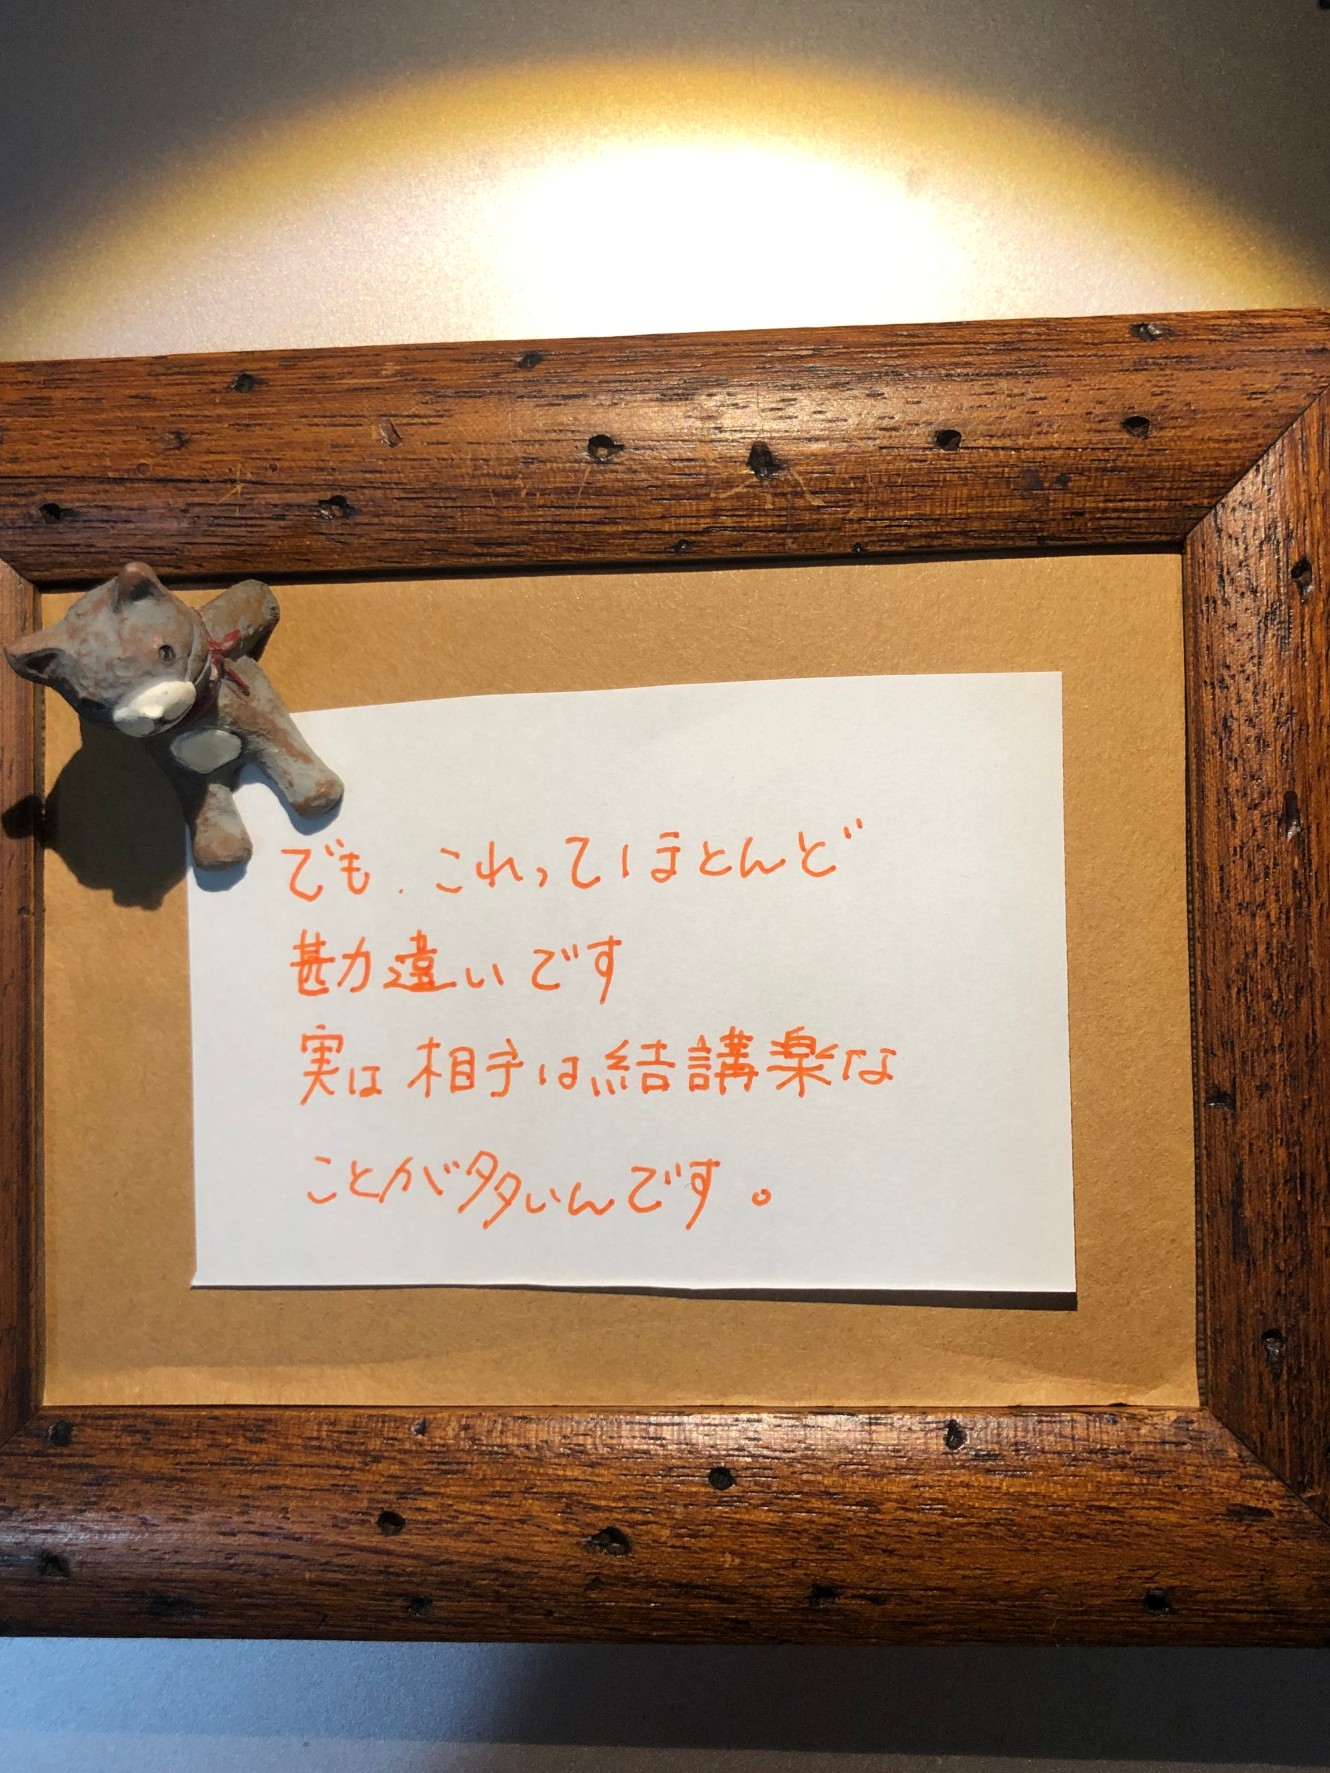 でも、これってほとんど
勘違いです
実は相手は結講楽な
ことが多いんです。